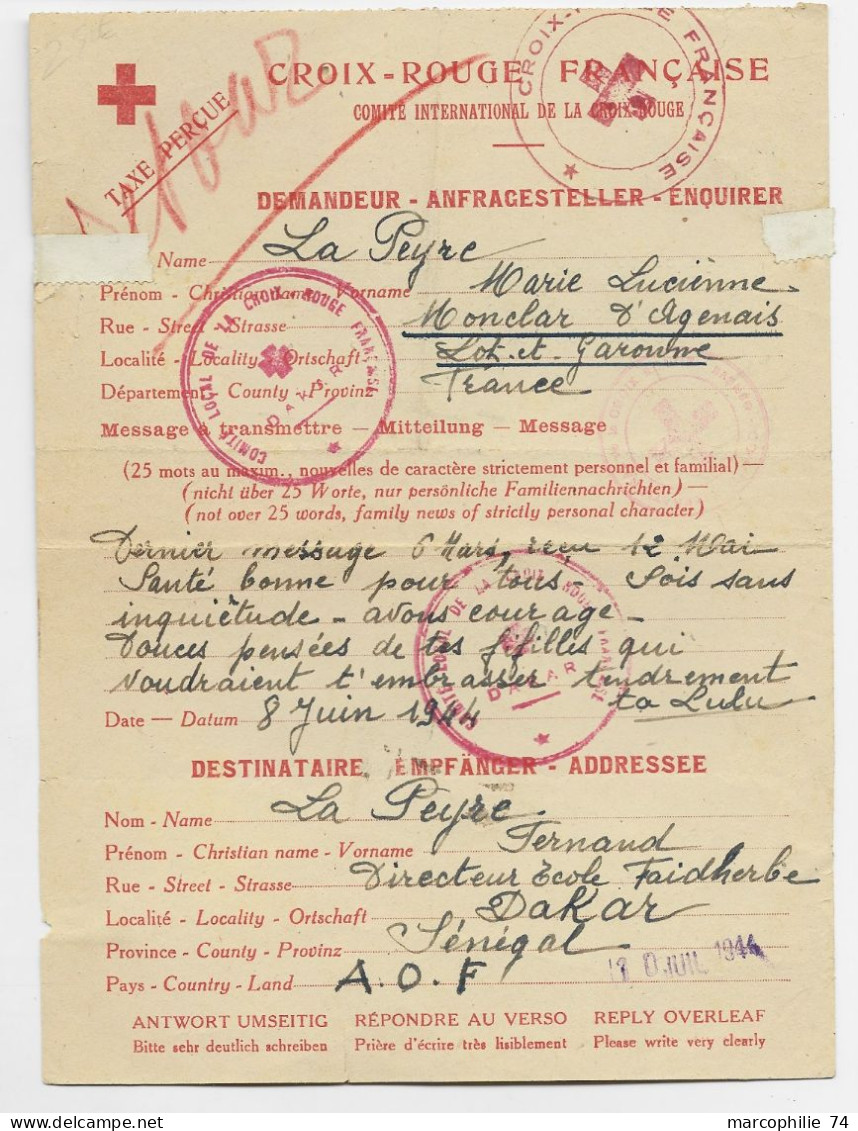 CROIX-ROUGE FRANÇAISE
COMITÉ INTERNATIONAL DE LA CROIX-ROUGE
TAXE PERÇUE
CROIX-ROUGE FRANÇAISE
DEMANDEUR - ANFRAGESTELLER - ENQUIRER
Name La Peyre
Prénom - Christian name - Vorname Marie Lucienne.
Rue - Street - Strasse Monclar D'Agenais
Localité - Locality - Ortschaft Lot-et-Garonne
Département - County - Provinz France
COMITÉ LOCAL DE LA CROIX-ROUGE FRANÇAISE
DAKAR
Message à transmettre — Mitteilung — Message
(25 mots au maxim., nouvelles de caractère strictement personnel et familial)
(nicht über 25 Worte, nur persönliche Familiennachrichten)
(not over 25 words, family news of strictly personal character)
Dernier message 6 Mars, reçu 12 Mai
Santé bonne pour tous - Sois sans
inquiétude - avons courage -
Douces pensées de tes fifilles qui
voudraient t'embrasser tendrement
ta Lulu
Date — Datum 8 Juin 1944
COMITÉ LOCAL DE LA CROIX-ROUGE FRANÇAISE
DAKAR
DESTINATAIRE - EMPFÄNGER - ADDRESSEE
Nom - Name La Peyre.
Prénom - Christian name - Vorname Fernand
Rue - Street - Strasse Directeur Ecole Faidherbe
Localité - Locality - Ortschaft Dakar
Province - County - Provinz Sénégal
Pays - Country - Land A.O.F
JUIL 1944
ANTWORT UMSEITIG RÉPONDRE AU VERSO REPLY OVERLEAF
Bitte sehr deutlich schreiben Prière d'écrire très lisiblement Please write very clearly
marcophilie 74